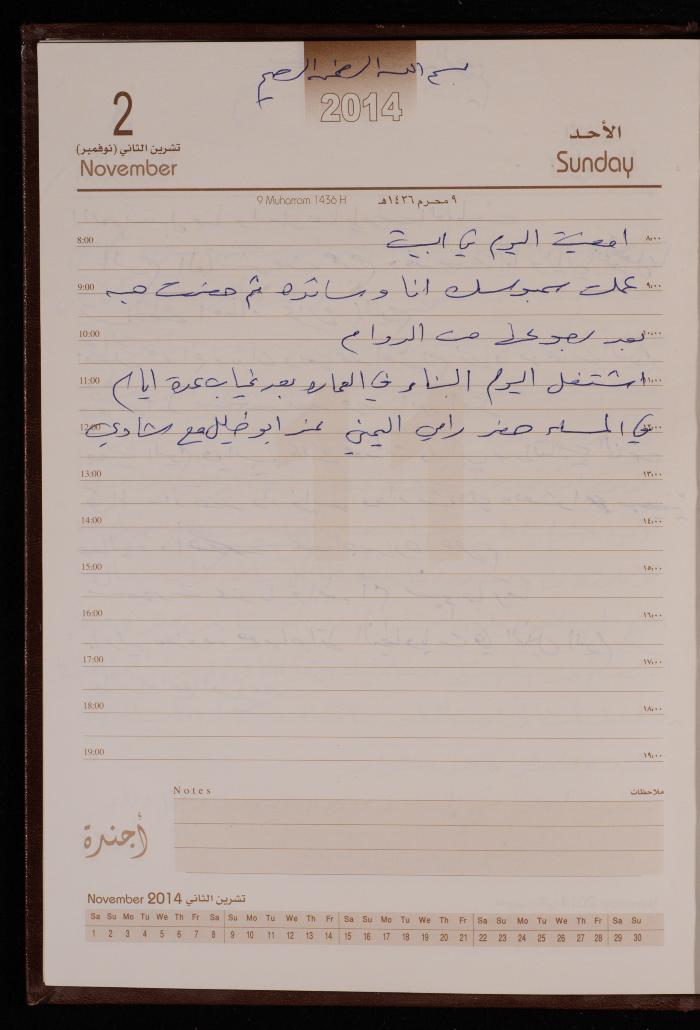 بسم الله الرحمن الرحيم
2014
2
تشرين الثاني (نوفمبر)
November
الأحد
Sunday
9 Muharram 1436 H
٩ محرم ١٤٣٦هـ
امضيت اليوم في البيت
8:00 ٨،٠٠
عملت سمبوسك انا و ساندة ثم حضرت هبه
9:00 ٩،٠٠
بعد رجوعها من الدوام
10:00 ١٠،٠٠
اشتغل اليوم البناء في العماره بعد غياب عدة ايام
11:00 ١١،٠٠
في المساء حضر رامي اليمني عند ابو خليل مع شادي
12:00 ١٢،٠٠
13:00 ١٣،٠٠
14:00 ١٤،٠٠
15:00 ١٥،٠٠
16:00 ١٦،٠٠
17:00 ١٧،٠٠
18:00 ١٨،٠٠
19:00 ١٩،٠٠
Notes ملاحظات
أجندة
November 2014 تشرين الثاني
Sa Su Mo Tu We Th Fr Sa Su Mo Tu We Th Fr Sa Su Mo Tu We Th Fr Sa Su Mo Tu We Th Fr Sa Su
1 2 3 4 5 6 7 8 9 10 11 12 13 14 15 16 17 18 19 20 21 22 23 24 25 26 27 28 29 30